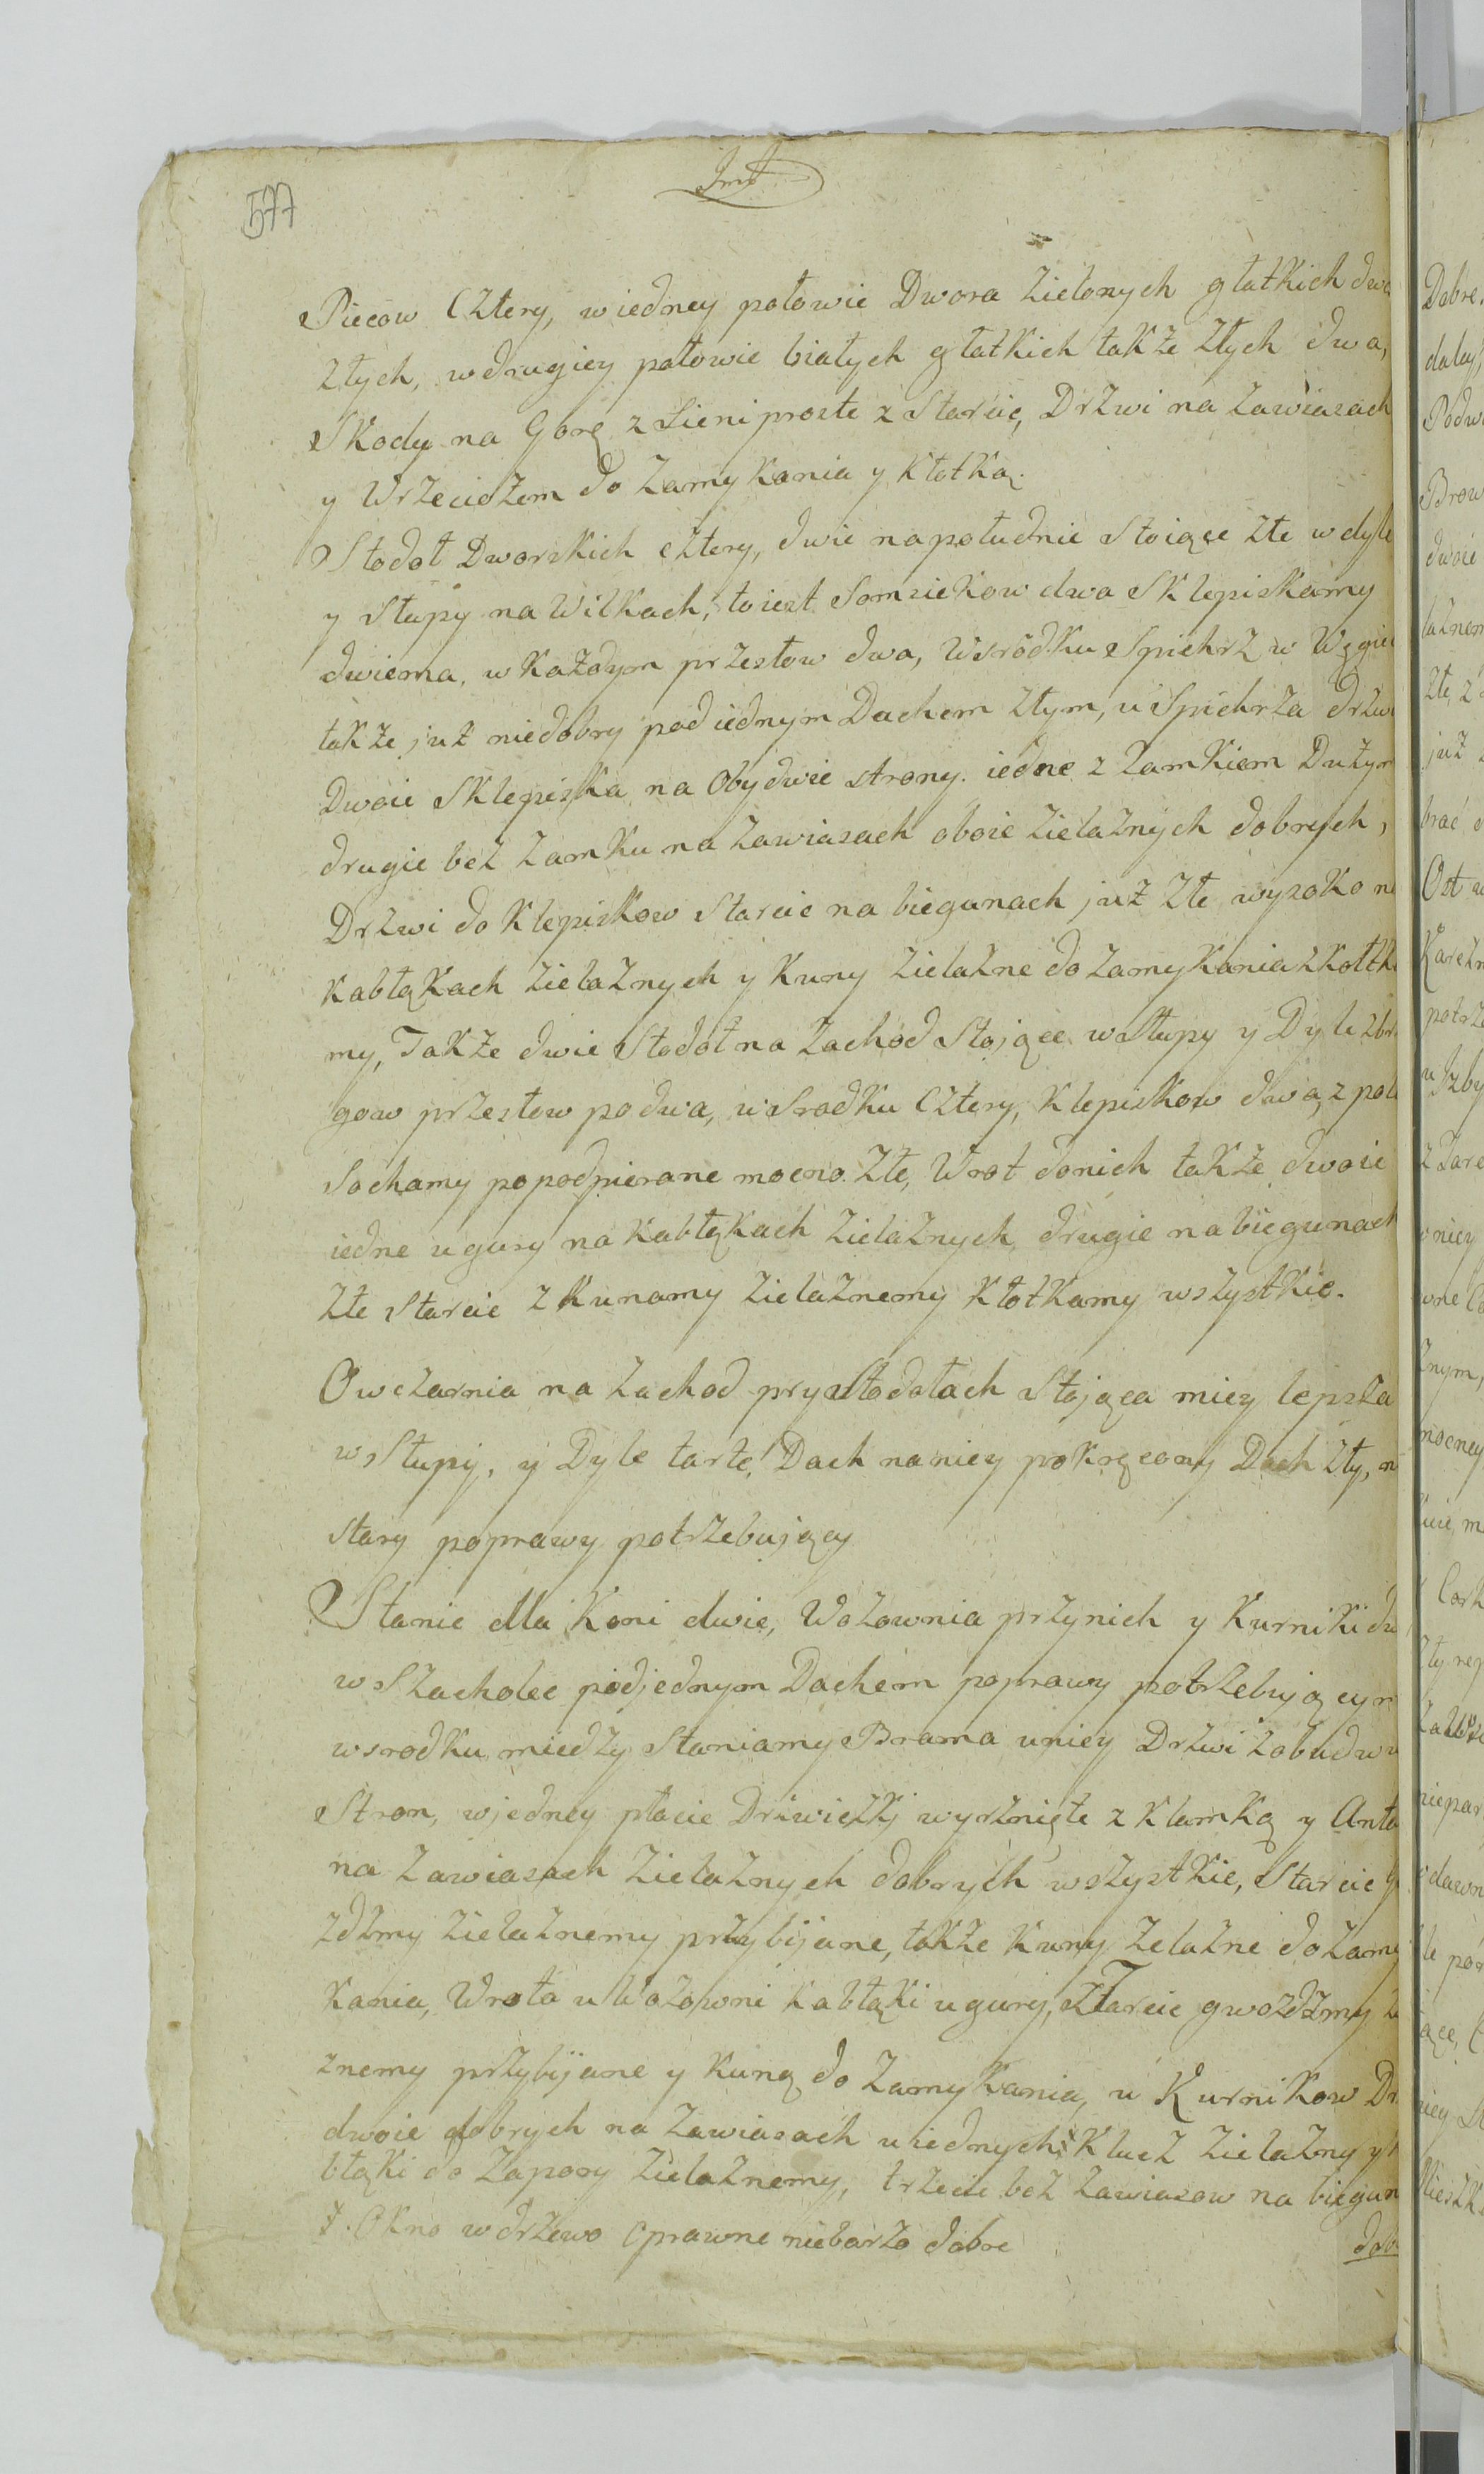 577
Piecow Cztery, wiedney połowie Dwora Zielonych głatkich dwa
złych, wdrugiey połowie białych głatkich także złych dwa,
Skody na Gorę z Sieni proste z Starcie, Drzwi na zawiasach
y Wrzeciożem do zamykania y Kłotką.
Stodoł Dworskich cztery, dwie napołudnie Stoiące złe w dyle
y słupy na Wilkach, toiest Somsiekow dwa Sklepiskamy
dwiema, w każdym przesłow dwa, Wsrodku Spichrz w Węgie
także już niedobry pod iednym Dachem złym, u Spichrza drzwi
Dwoie Sklepiska na Obydwie strony. iedne z zamkiem Dużym
drugie bez zamku na zawiasach oboie zielaznych dobrych,
Drzwi do Klepiskow starcie na biegunach już złe wysoko na
kabłąkach zielaznych y Kuny zielazne do zamykania zkołtka
my, Także dwie Stodoł na zachod Stojące w słupy y Dyle zbr
gow przesłow podwa, wsrodku Cztery, Klepiskow dwa, z pol
Sochamy popodpierane mocno złe, Wrot donich także dwoie
iedne ugury na kabłąkach zielaznych drugie na biegunach
złe starcie z kunamy zielaznemy kłotkamy wszystkie.
Owczarnia na zachod przy Stodołach stojąca miey lepsza
w słupy, y Dyle tarte, Dach naniey pokręcony Dach zły, n
stary poprawy potrzebujący
Stanie dla Koni dwie, Wozownia przynich y Kurniki dw
w Szacholec podjednym Dachem poprawy potrzebującym
wsrodku miedzy Staniamy Brama uniey Drzwi zobudwu
Stron, wjedney płacie Drzwiczkj wyrznięte z klamką y Anta
na zawiasach zielaznych dobrych wszystkie, Starcie g
zdzmy zielaznemy przybijane, także kuny zelazne dozamy
kania, Wrota u Wozowni kabłąki ugury, sTarcie gwozdzmy ze
znemy przybijane y kuną do zamykania, u Kurnikow Dr
dwoie dobrych na zawiasach u iednych Klucz zielazny y
błąki do zapory zielaznemy, trzecie bez zawiasow na biegun
Okno w drzewo Oprawne niebarzo dobre